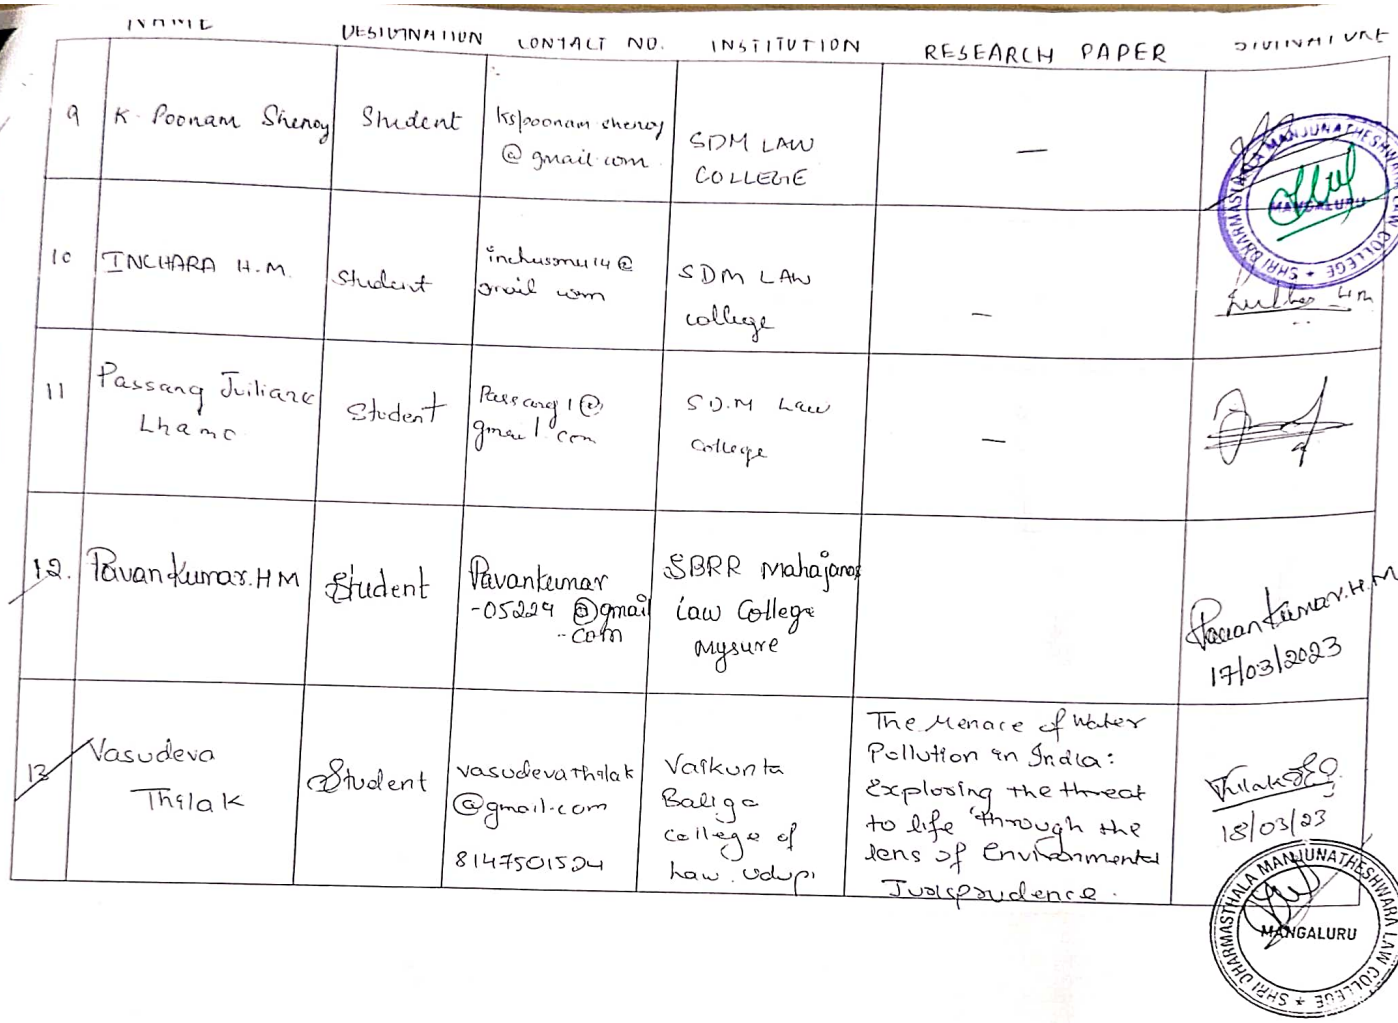 NAME DESIGNATION CONTACT NO. INSTITUTION RESEARCH PAPER SIGNATURE
9 K. Poonam Shenoy Student kspoonam shenoy @ gmail.com SDM LAW COLLEGE —
10 INCHARA H.M. Student @ gmail com SDM LAW college —
11 Passang Juiliane Lhamo Student Passang1@ gmail.com S.D.M Law College —
12. Pavan Kumar.H M Student Pavankumar -05229 @gmail .com SBRR Mahajana Law College Mysure Pavan Kumar.H.M 17/03/2023
13 Vasudeva Thilak Student vasudevathilak @gmail.com 8147501524 Vaikunta Baliga college of Law. Udupi The Menace of Water Pollution in India: Exploring the threat to life through the lens of Environmental Jurisprudence. Thilak 18/03/23
SHRI DHARMASTHALA MANJUNATHESHWARA LAW COLLEGE
MANGALURU
SHRI DHARMASTHALA MANJUNATHESHWARA LAW COLLEGE
MANGALURU